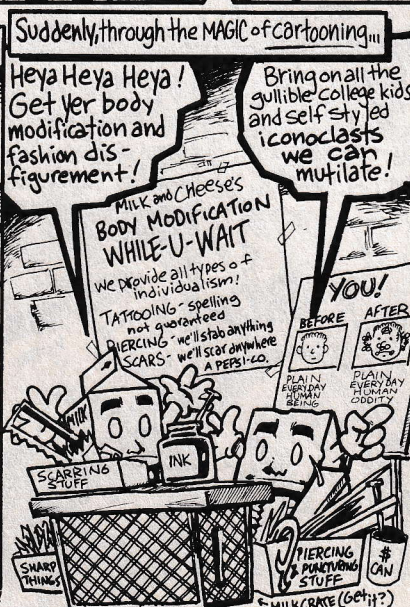 Suddenly, through the MAGIC of cartooning...
Heya Heya Heya!
Get Yer body
modification and
fashion dis-
figurement!
Bring on all the
gullible college kids
and self styled
iconoclasts
we can
mutilate!
MILK and CHEESE'S
BODY MODIFICATION
WHILE-U-WAIT
we provide all types of
individualism!
TATTOOING - spelling
not guaranteed
PIERCING - we'll stab anything
SCARS - we'll scar anywhere
A PEPSI-CO.
YOU!
BEFORE
AFTER
PLAIN
EVERYDAY
HUMAN
BEING
PLAIN
EVERYDAY
HUMAN
ODDITY
MILK
INK
SCARRING
STUFF
SHARP
THINGS
PIERCING
& PUNCTURING
STUFF
$
CAN
MILK CRATE (Get it?)